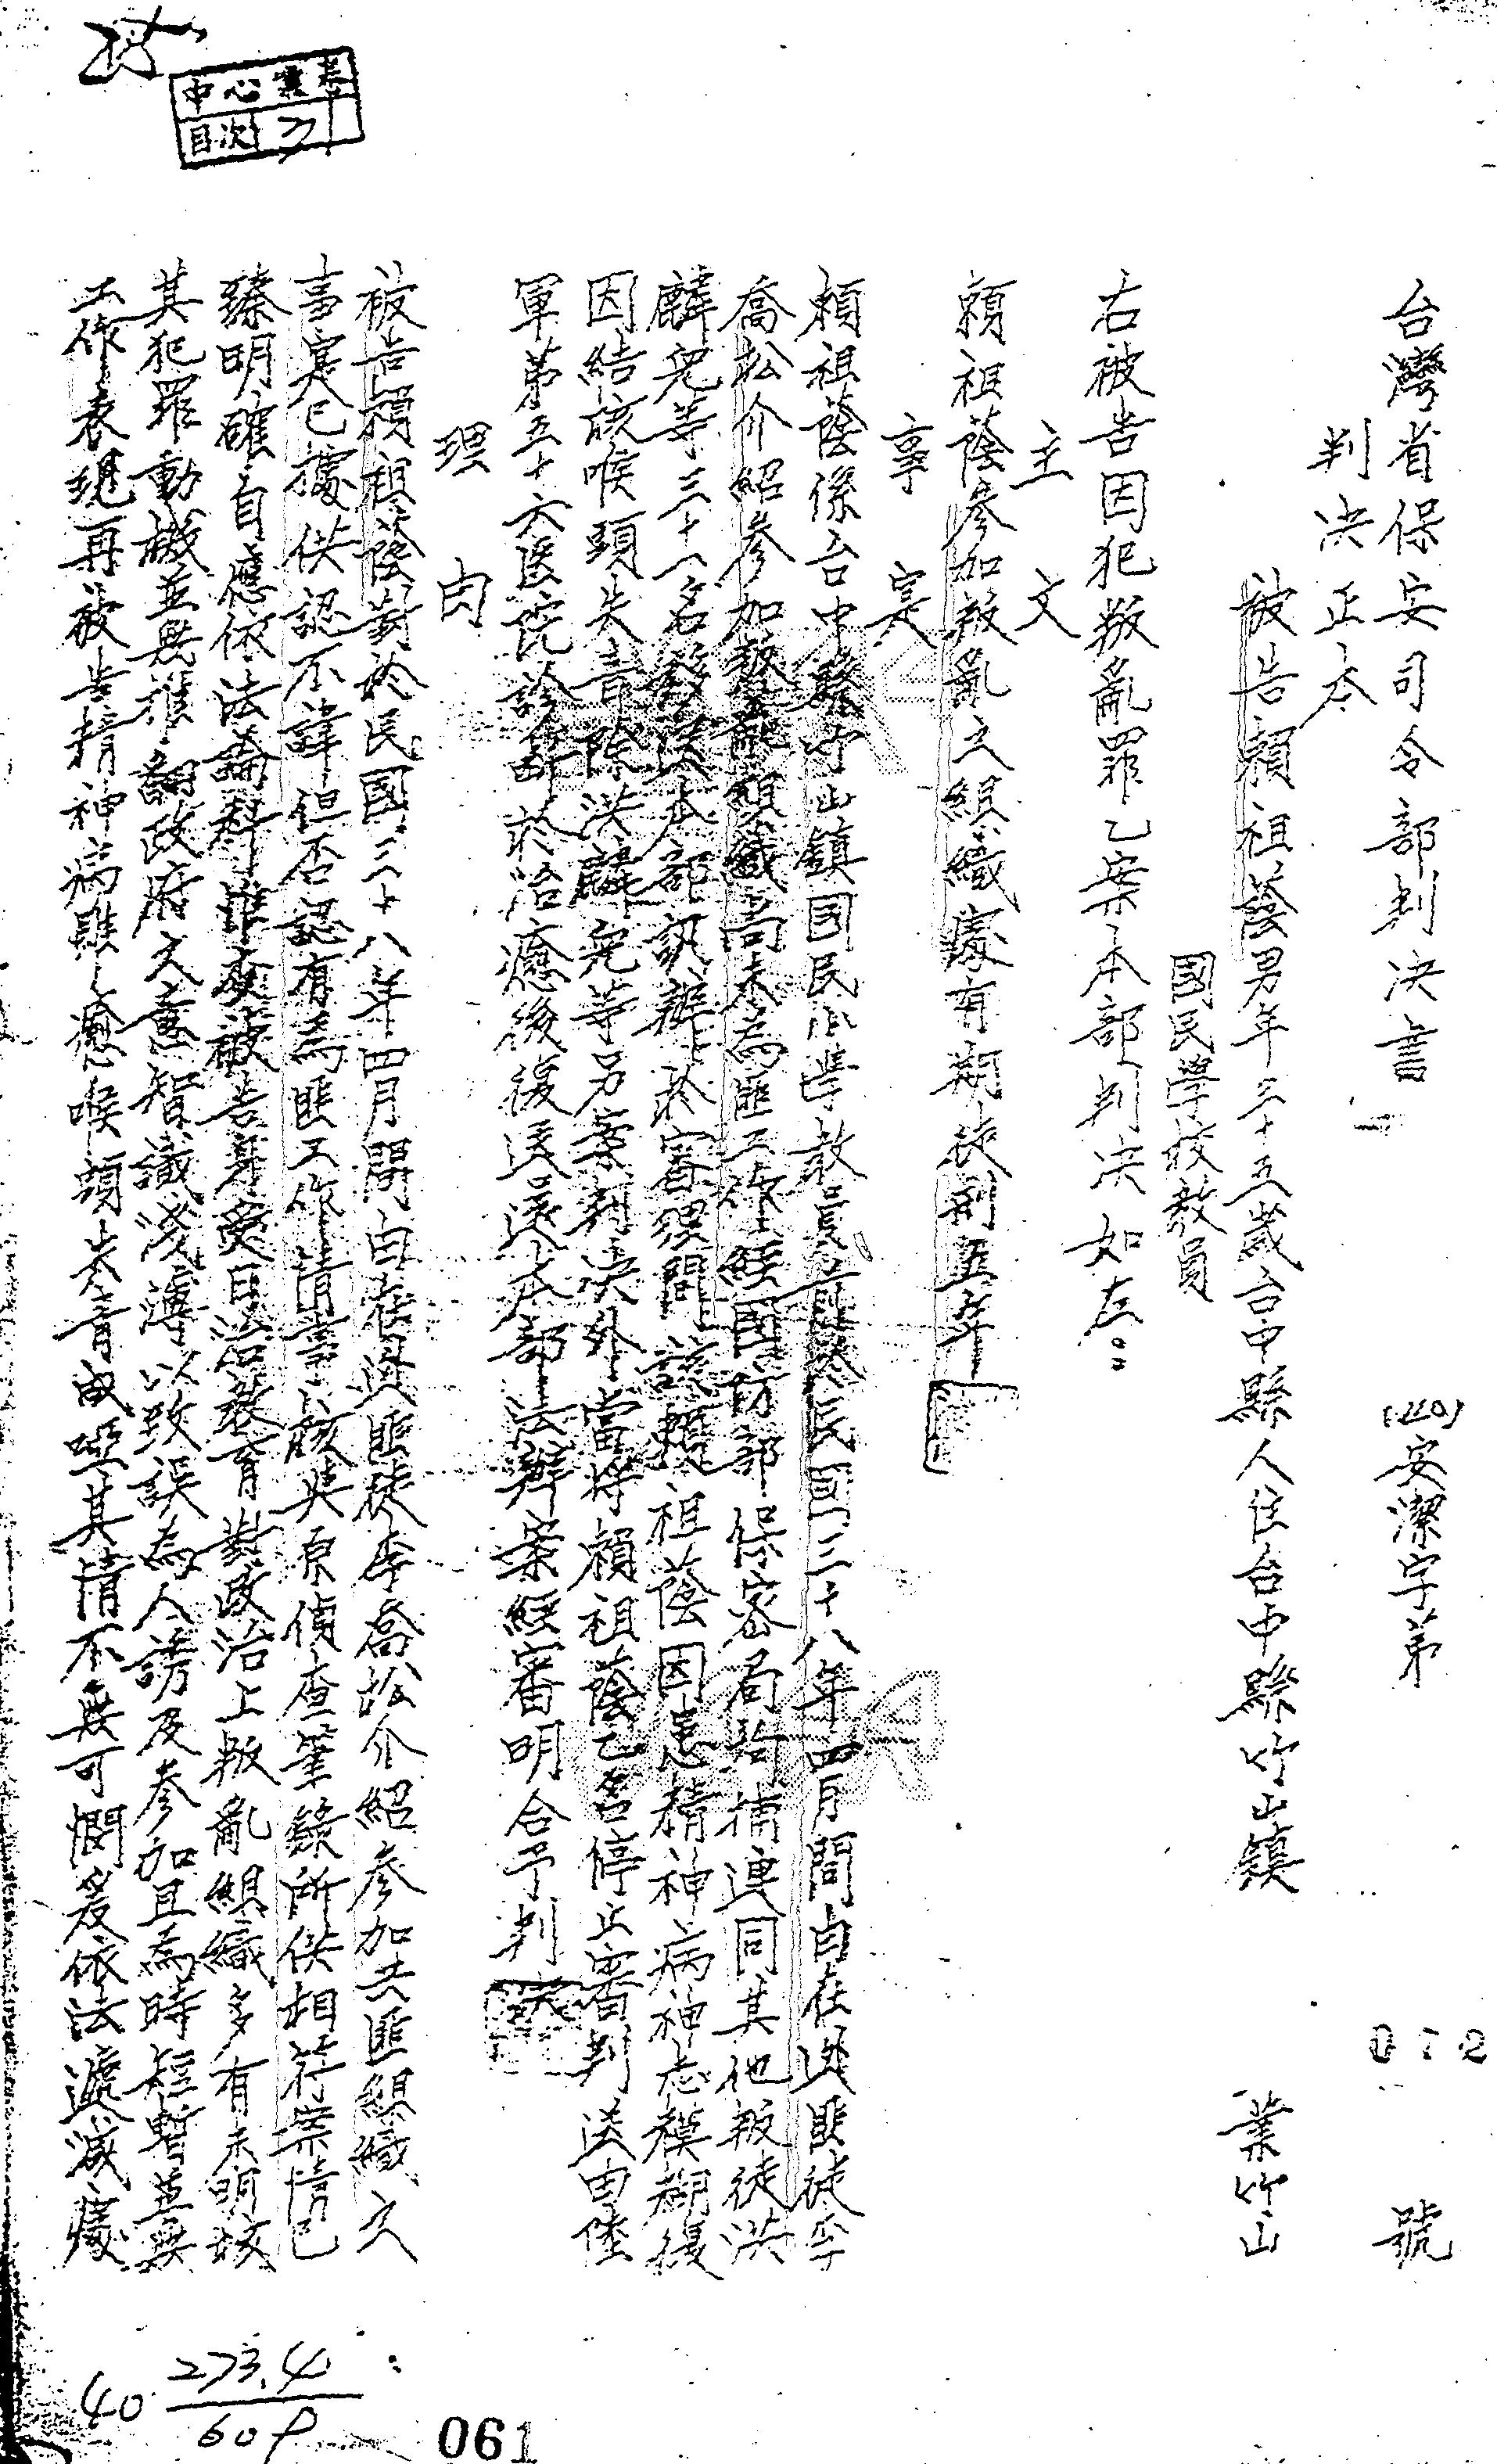 台灣省保安司令部判決書
(40)安潔字第 072 號
判決正本
被告賴祖蔭男年三十五歲台中縣人住台中縣竹山鎮 業竹山
國民學校教員
右被告因犯叛亂罪乙案本部判決如左:
主文
賴祖蔭參加叛亂之組織處有期徒刑五年
事實
賴祖蔭係台中縣竹山鎮國民小學教員前於民國三十八年四月間由在逃匪徒李
喬松介紹參加叛亂組織尚未為匪工作經國防部保密局拘捕連同其他叛徒洪
麟兒等三十一名發送本部訊辦於審理間該賴祖蔭因患精神病神志模糊復
因結核喉頭失音除洪麟兒等另案判決外當將賴祖蔭乙名停止審判送由陸
軍第五十六医院診斷於治癒後復送還本部法辦案經審明合予判決
理由
被告賴祖蔭對於民國三十八年四月間由在逃匪徒李喬松介紹參加共匪組織之
事實已據供認不諱但否認有為匪工作情事核與原偵查筆錄所供相符案情已
臻明確自應依法論科惟查被告身受日治教育對政治上叛亂組織多有未明核
其犯罪動機並無推翻政府之意智識淺薄以致誤為人誘及參加且為時短暫並無
工作表現再被告精神病雖癒喉頭失音成啞其情不無可憫爰依法遞減處
中心檔案
目次
273.4
609
40
061